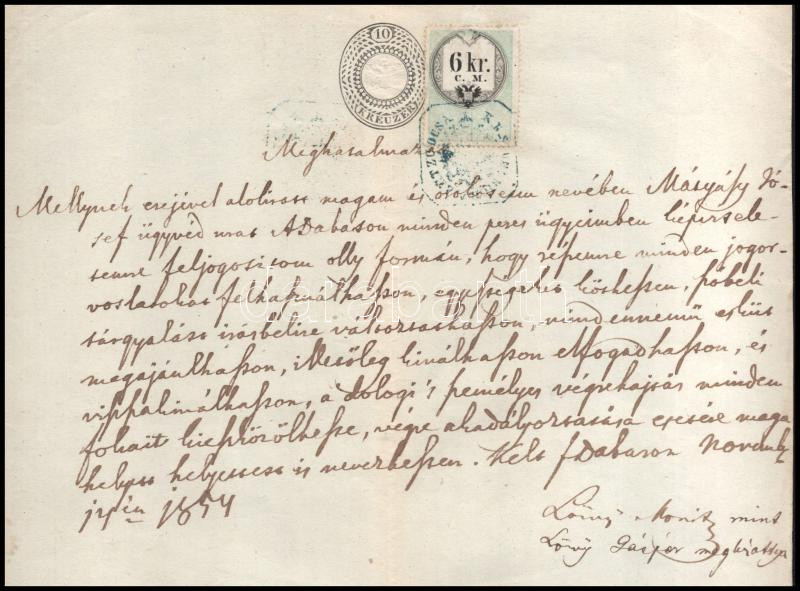 10
KREUZER
6 kr.
C. M.
Meghatalmazás
Mellynek erejével alólirott magam és örököseim nevében Mátyásy Jó-
sef ügyvéd urat ADabason minden peres ügyeimben képvisele-
temre feljogositom olly formán, hogy részemre minden jogor-
voslatokat felhasználhasson, egyességeket köthessen, szóbeli
tárgyalást irásbelire változtathasson, mindennemű esküt
megajánlhasson, kinálhasson elfogadhasson, és
viszszakinálhasson, a dologi 's személyes végrehajtás minden
fokait kieszközölhesse, végre akadályoztatása esetére maga
helyett helyettest is nevezhessen. Kelt ADabason Novemb
1854
Löwy Moritz mint
Löwy Gáspár meghatalmazottja
darabanth